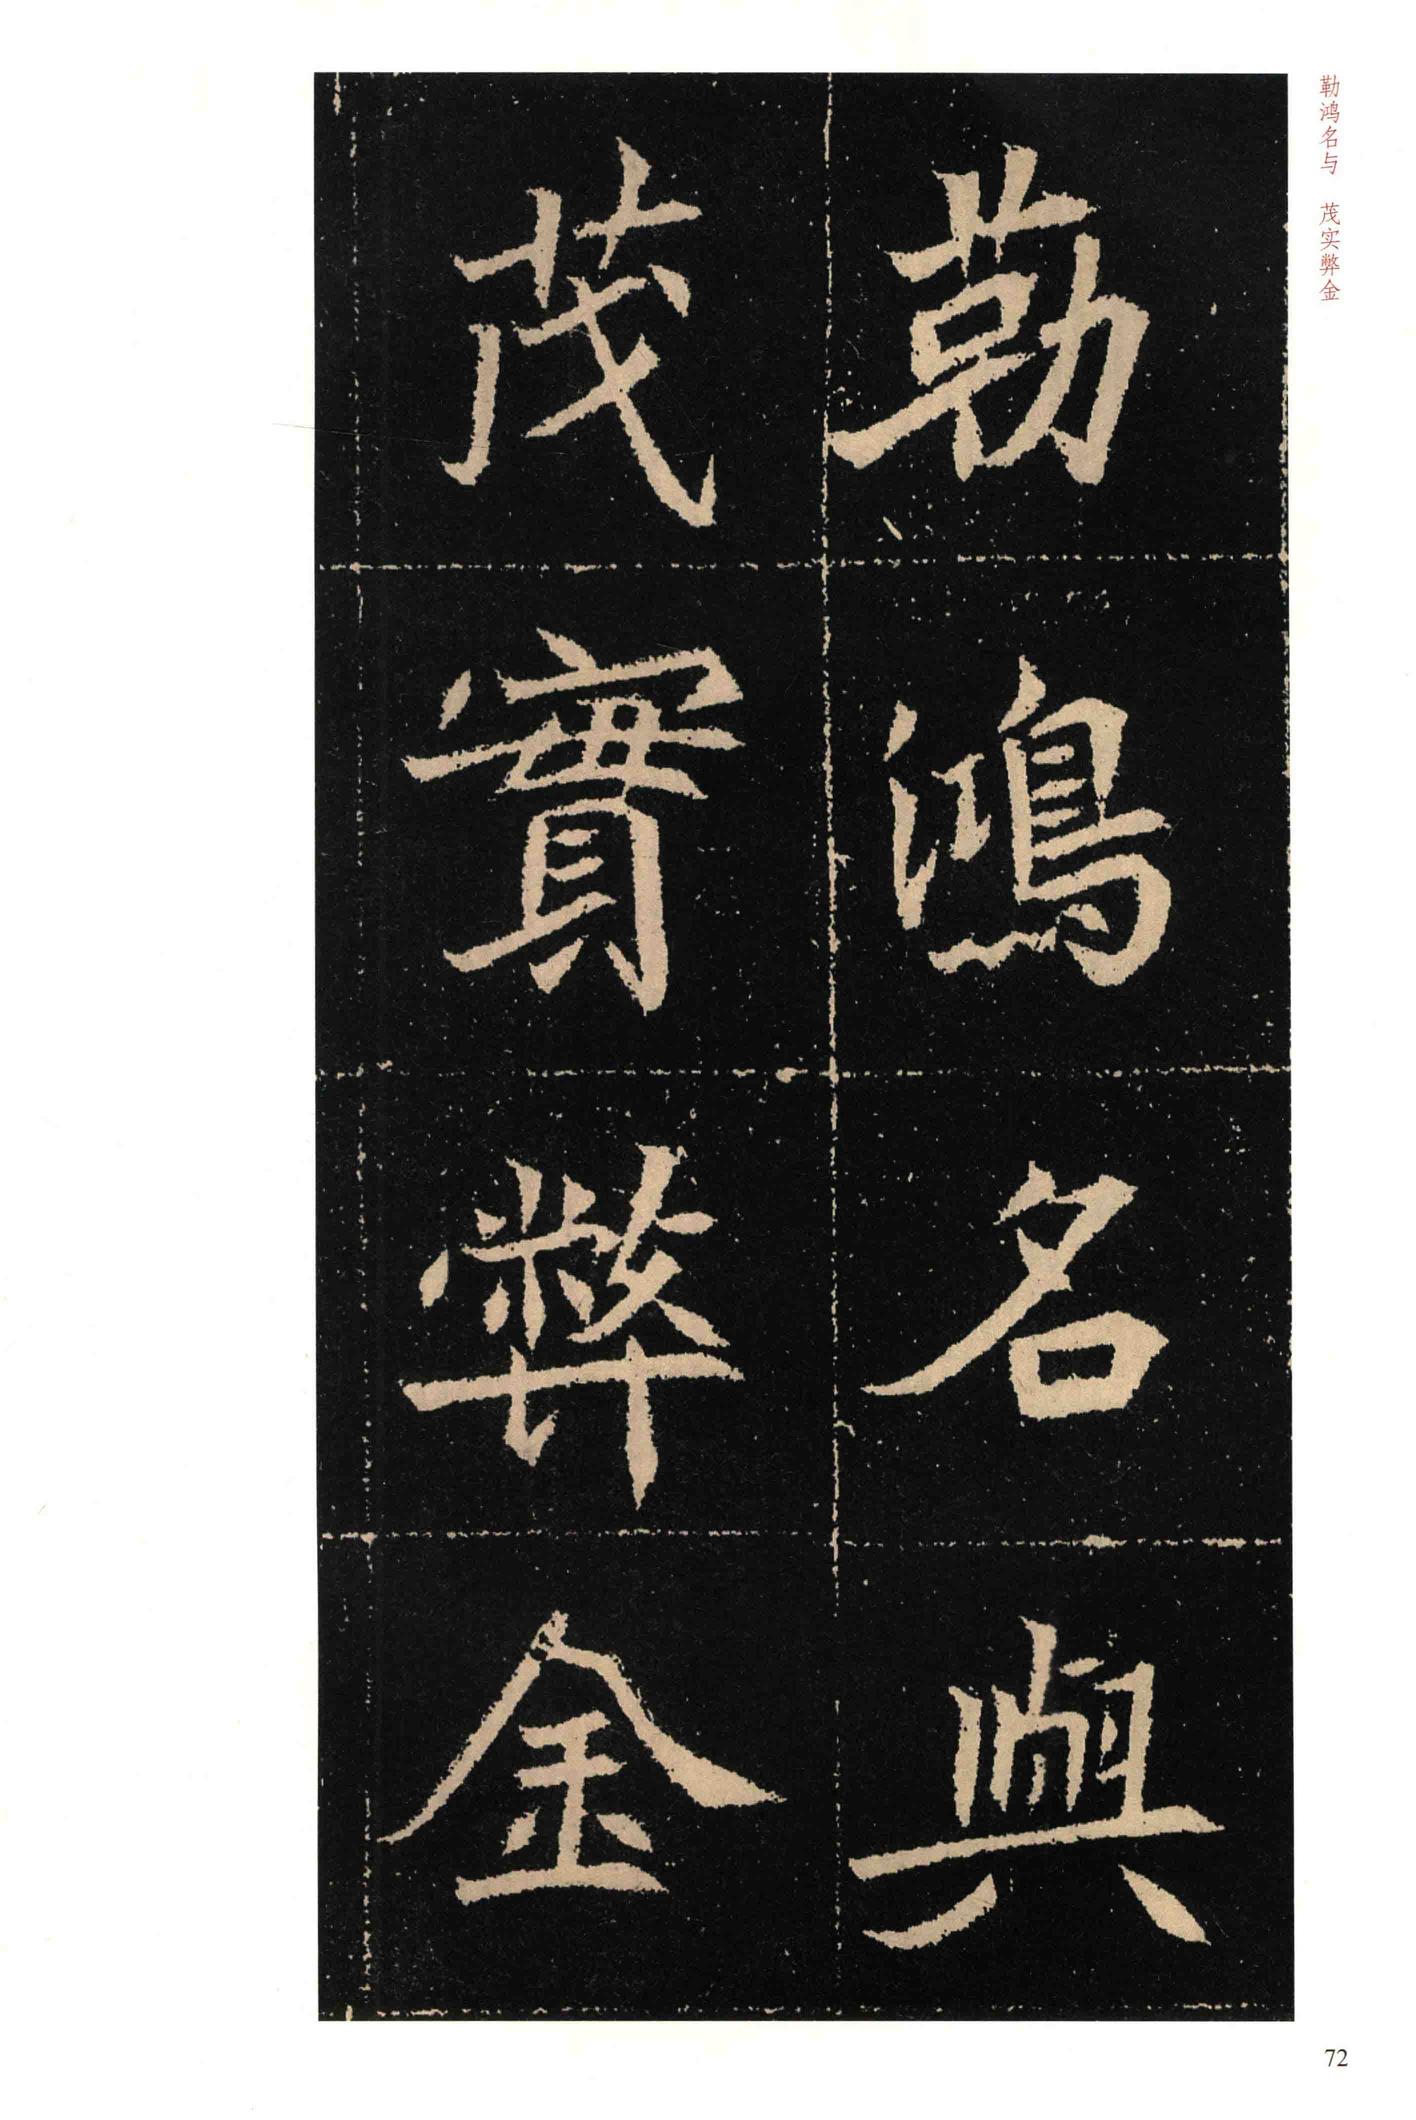 勒鸿名与 茂实弊金
勒鴻名與
茂實弊金
72